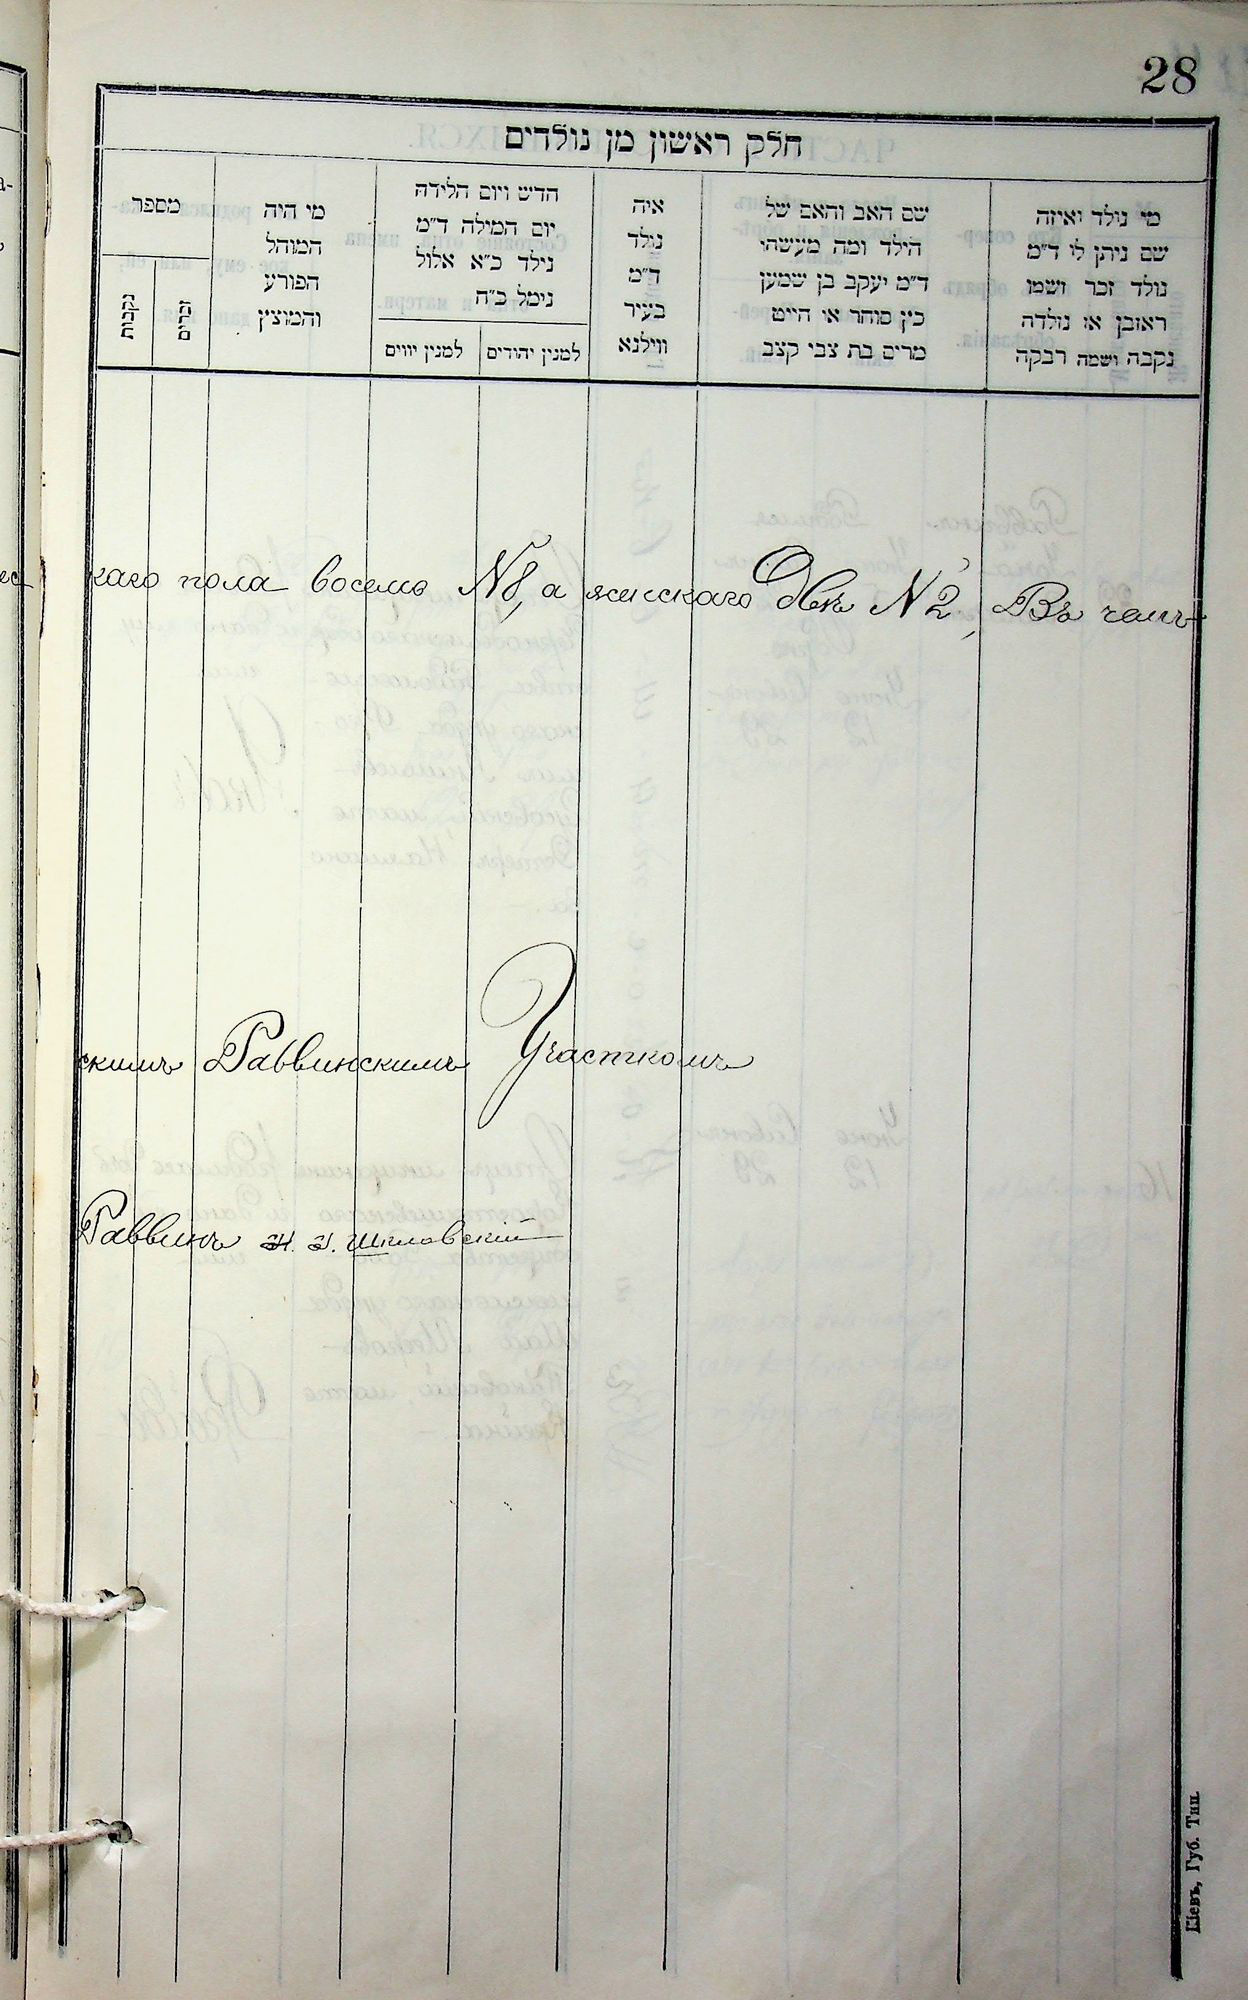 28
חלק ראשון מן נולדים
מספר
נקבות
זכרים
מי היה
המוהל
הפורע
והמוצץ
חדש ויום הלידה
יום המילה ד״מ
נילד כ״א אלול
נימל כ״ח
למנין יווים
למנין יהודים
איה
נולד
ד״מ
בעיר
ווילנא
שם האב והאם של
הילד ומה מעשהי
ד״מ יעקב בן שמען
כץ סוחר או חייט
מרים בת צבי קצב
מי נולד ואיזה
שם ניתן לו ד״מ
נולד זכר ושמו
ראובן או נולדה
נקבה ושמה רבקה
каго пола восемь №8, а женскаго двѣ №2, Въ чемъ
скимъ Раввинскимъ Участкомъ
Раввинъ Шкловскій
Кіевъ, Губ. Тип.